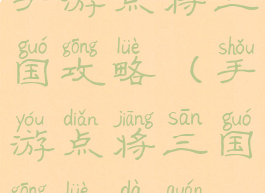 手游点将三
guó gōng lüè shǒu
国攻略（手
yóu diǎn jiāng sān guó
游点将三国
gōng lüè dà quán